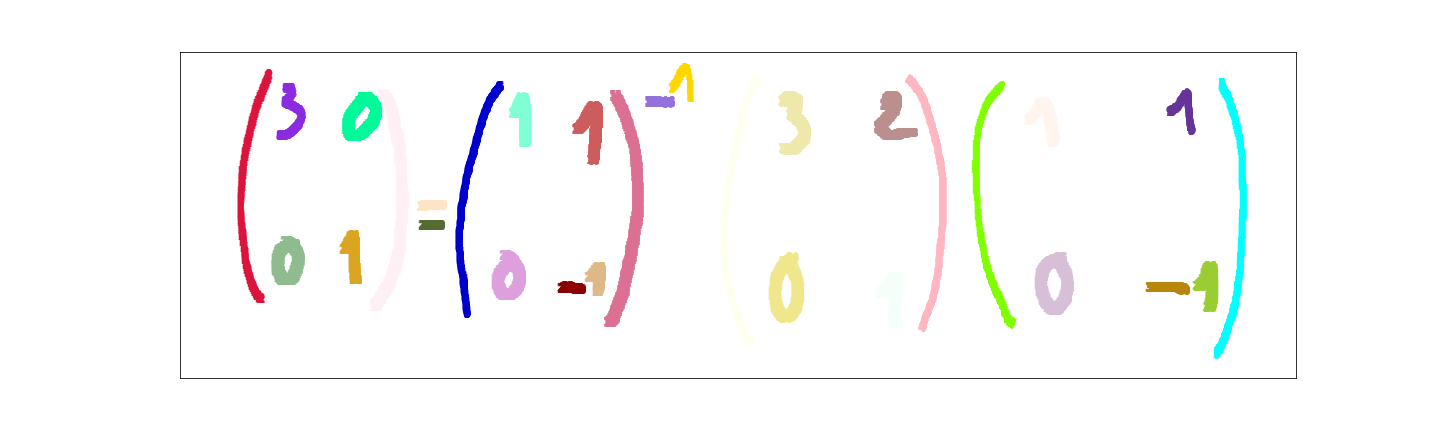 \begin{pmatrix} 3 & 0 \\ 0 & 1 \end{pmatrix} = \begin{pmatrix} 1 & 1 \\ 0 & -1 \end{pmatrix}^{-1} \begin{pmatrix} 3 & 2 \\ 0 & 1 \end{pmatrix} \begin{pmatrix} 1 & 1 \\ 0 & -1 \end{pmatrix}